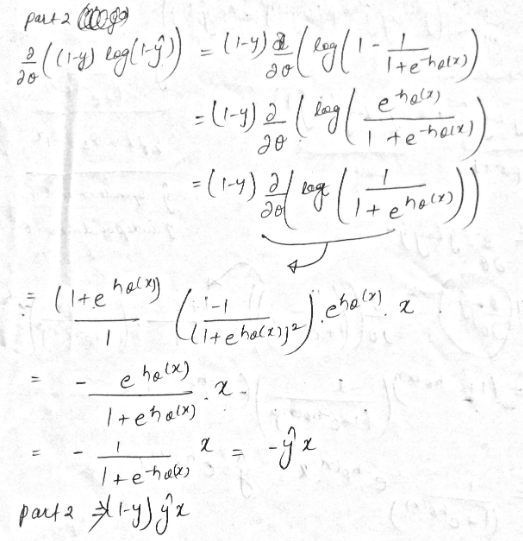 part 2
∂/∂θ ((1-y) log(1-ŷ)) = (1-y) ∂/∂θ (log(1 - 1/(1+e^-hθ(x)))
= (1-y) ∂/∂θ (log(e^-hθ(x)/(1+e^-hθ(x)))
= (1-y) ∂/∂θ (log(1/(1+e^hθ(x))))
= (1+e^hθ(x))/1 (-1/(1+e^hθ(x))²) · e^hθ(x) · x
= - e^hθ(x)/(1+e^hθ(x)) · x
= - 1/(1+e^-hθ(x)) x = -ŷx
part 2 ⇒ (1-y) ŷx